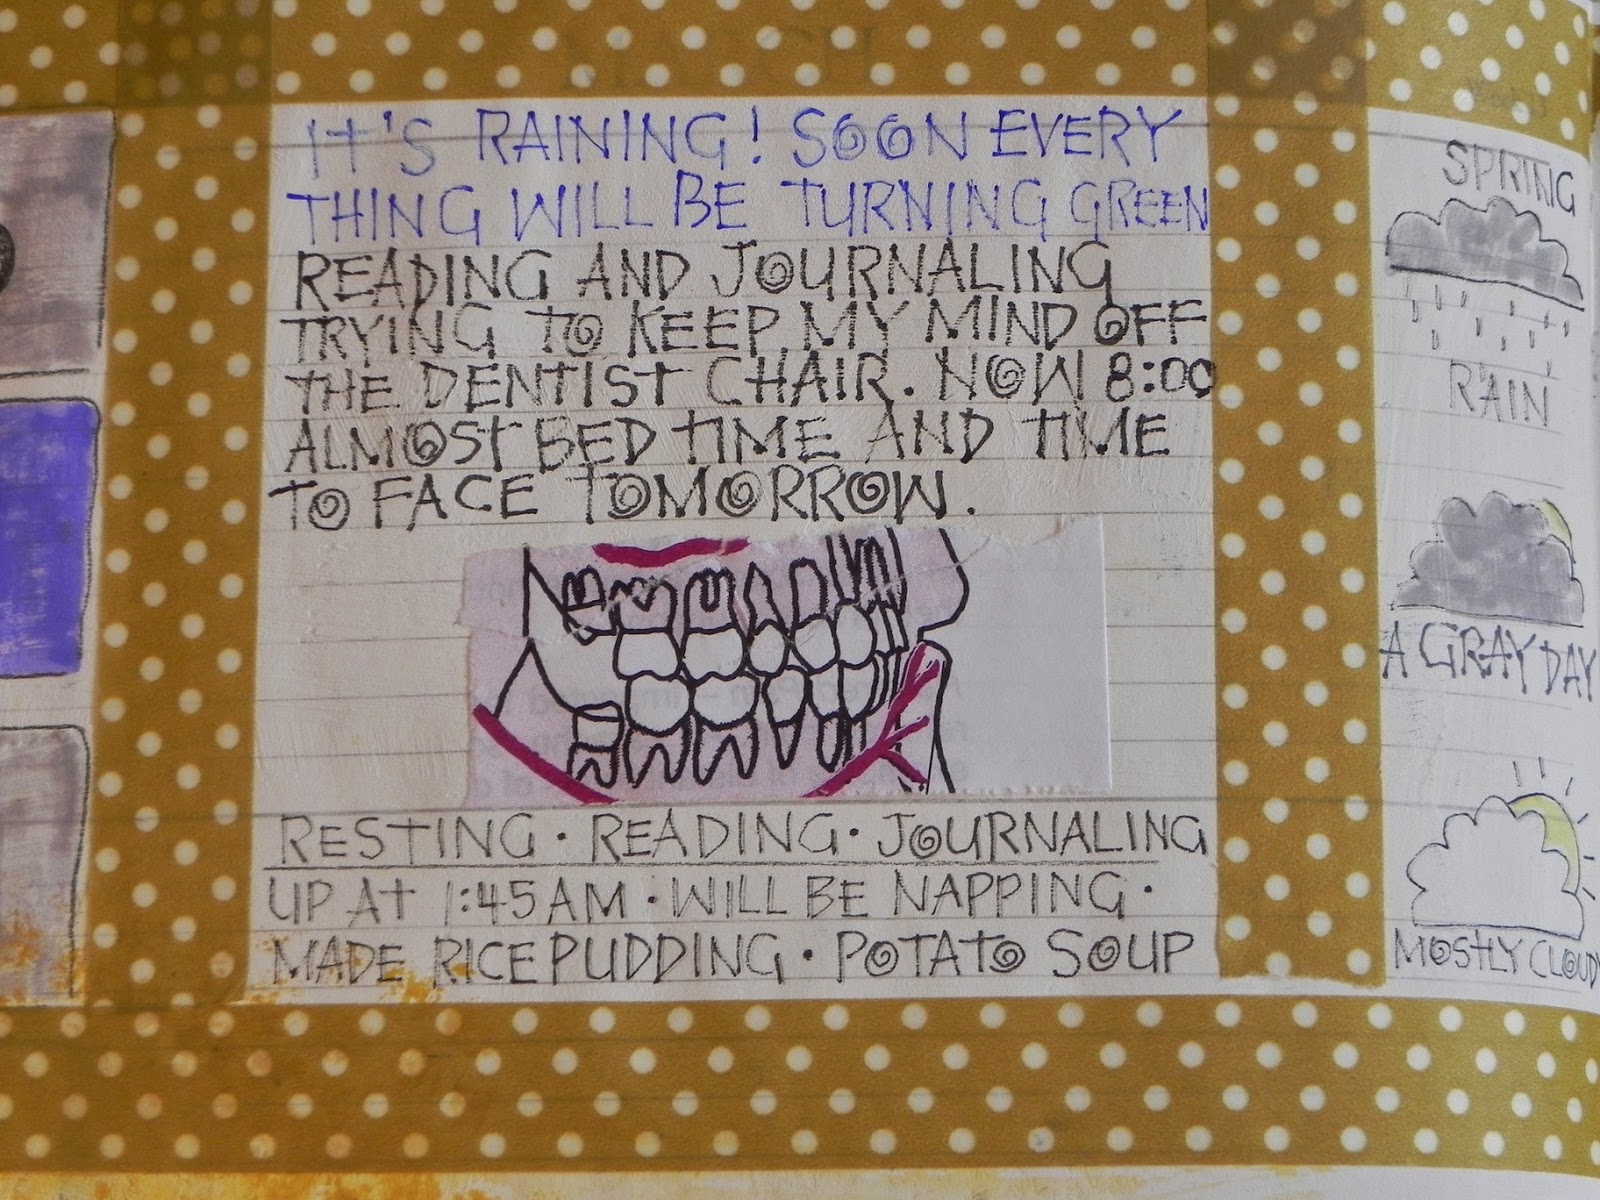 IT'S RAINING! SOON EVERY
THING WILL BE TURNING GREEN
READING AND JOURNALING
TRYING TO KEEP MY MIND OFF
THE DENTIST CHAIR. NOW 8:00
ALMOST BED TIME AND TIME
TO FACE TOMORROW.
RESTING • READING • JOURNALING
UP AT 1:45 AM • WILL BE NAPPING •
MADE RICE PUDDING • POTATO SOUP
SPRING
RAIN
A GRAY DAY
MOSTLY CLOUDY